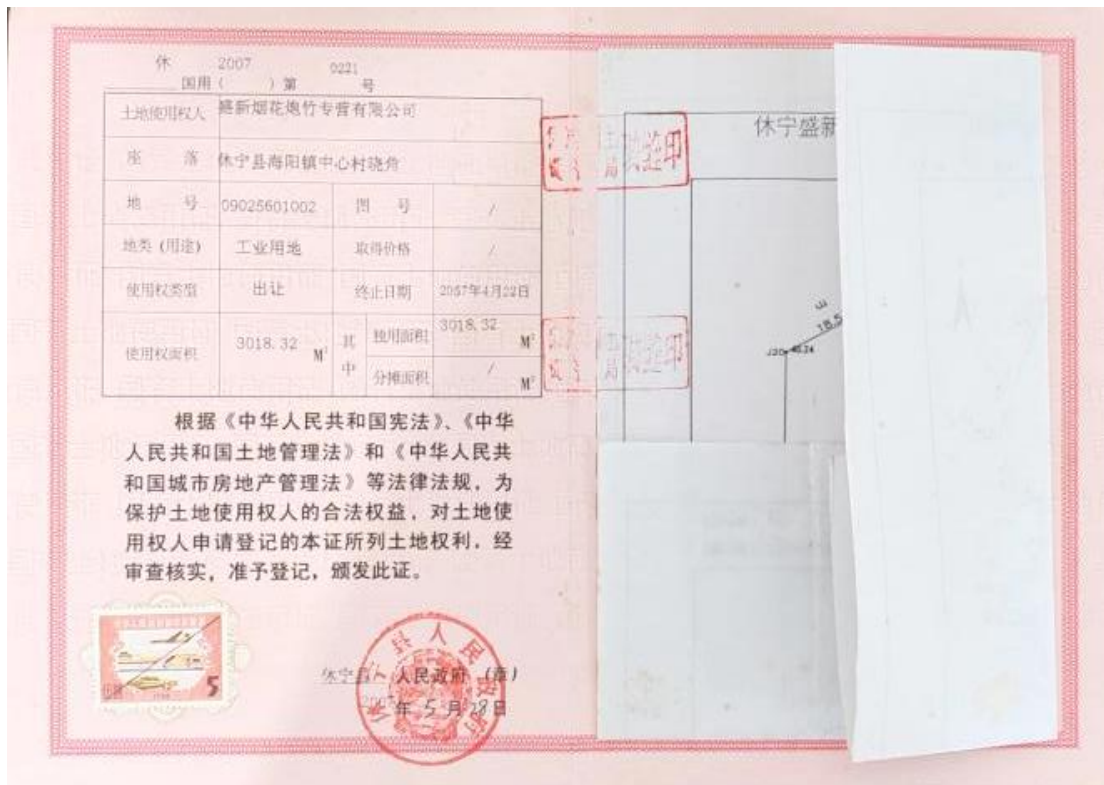 休 2007 0221
国用( )第 号
土地使用权人 盛新烟花炮竹专营有限公司
座 落 休宁县海阳镇中心村晓角
地 号 09025601002 图 号 /
地类(用途) 工业用地 取得价格 /
使用权类型 出让 终止日期 2057年4月22日
使用权面积 3018.32 M² 其中 独用面积 3018.32 M²
分摊面积 / M²
根据《中华人民共和国宪法》、《中华
人民共和国土地管理法》和《中华人民共
和国城市房地产管理法》等法律法规,为
保护土地使用权人的合法权益,对土地使
用权人申请登记的本证所列土地权利,经
审查核实,准予登记,颁发此证。
5
休宁县 人民政府(章)
2007年5月28日
休宁县人民政府
休宁盛新
山
18.5
J20 46.24